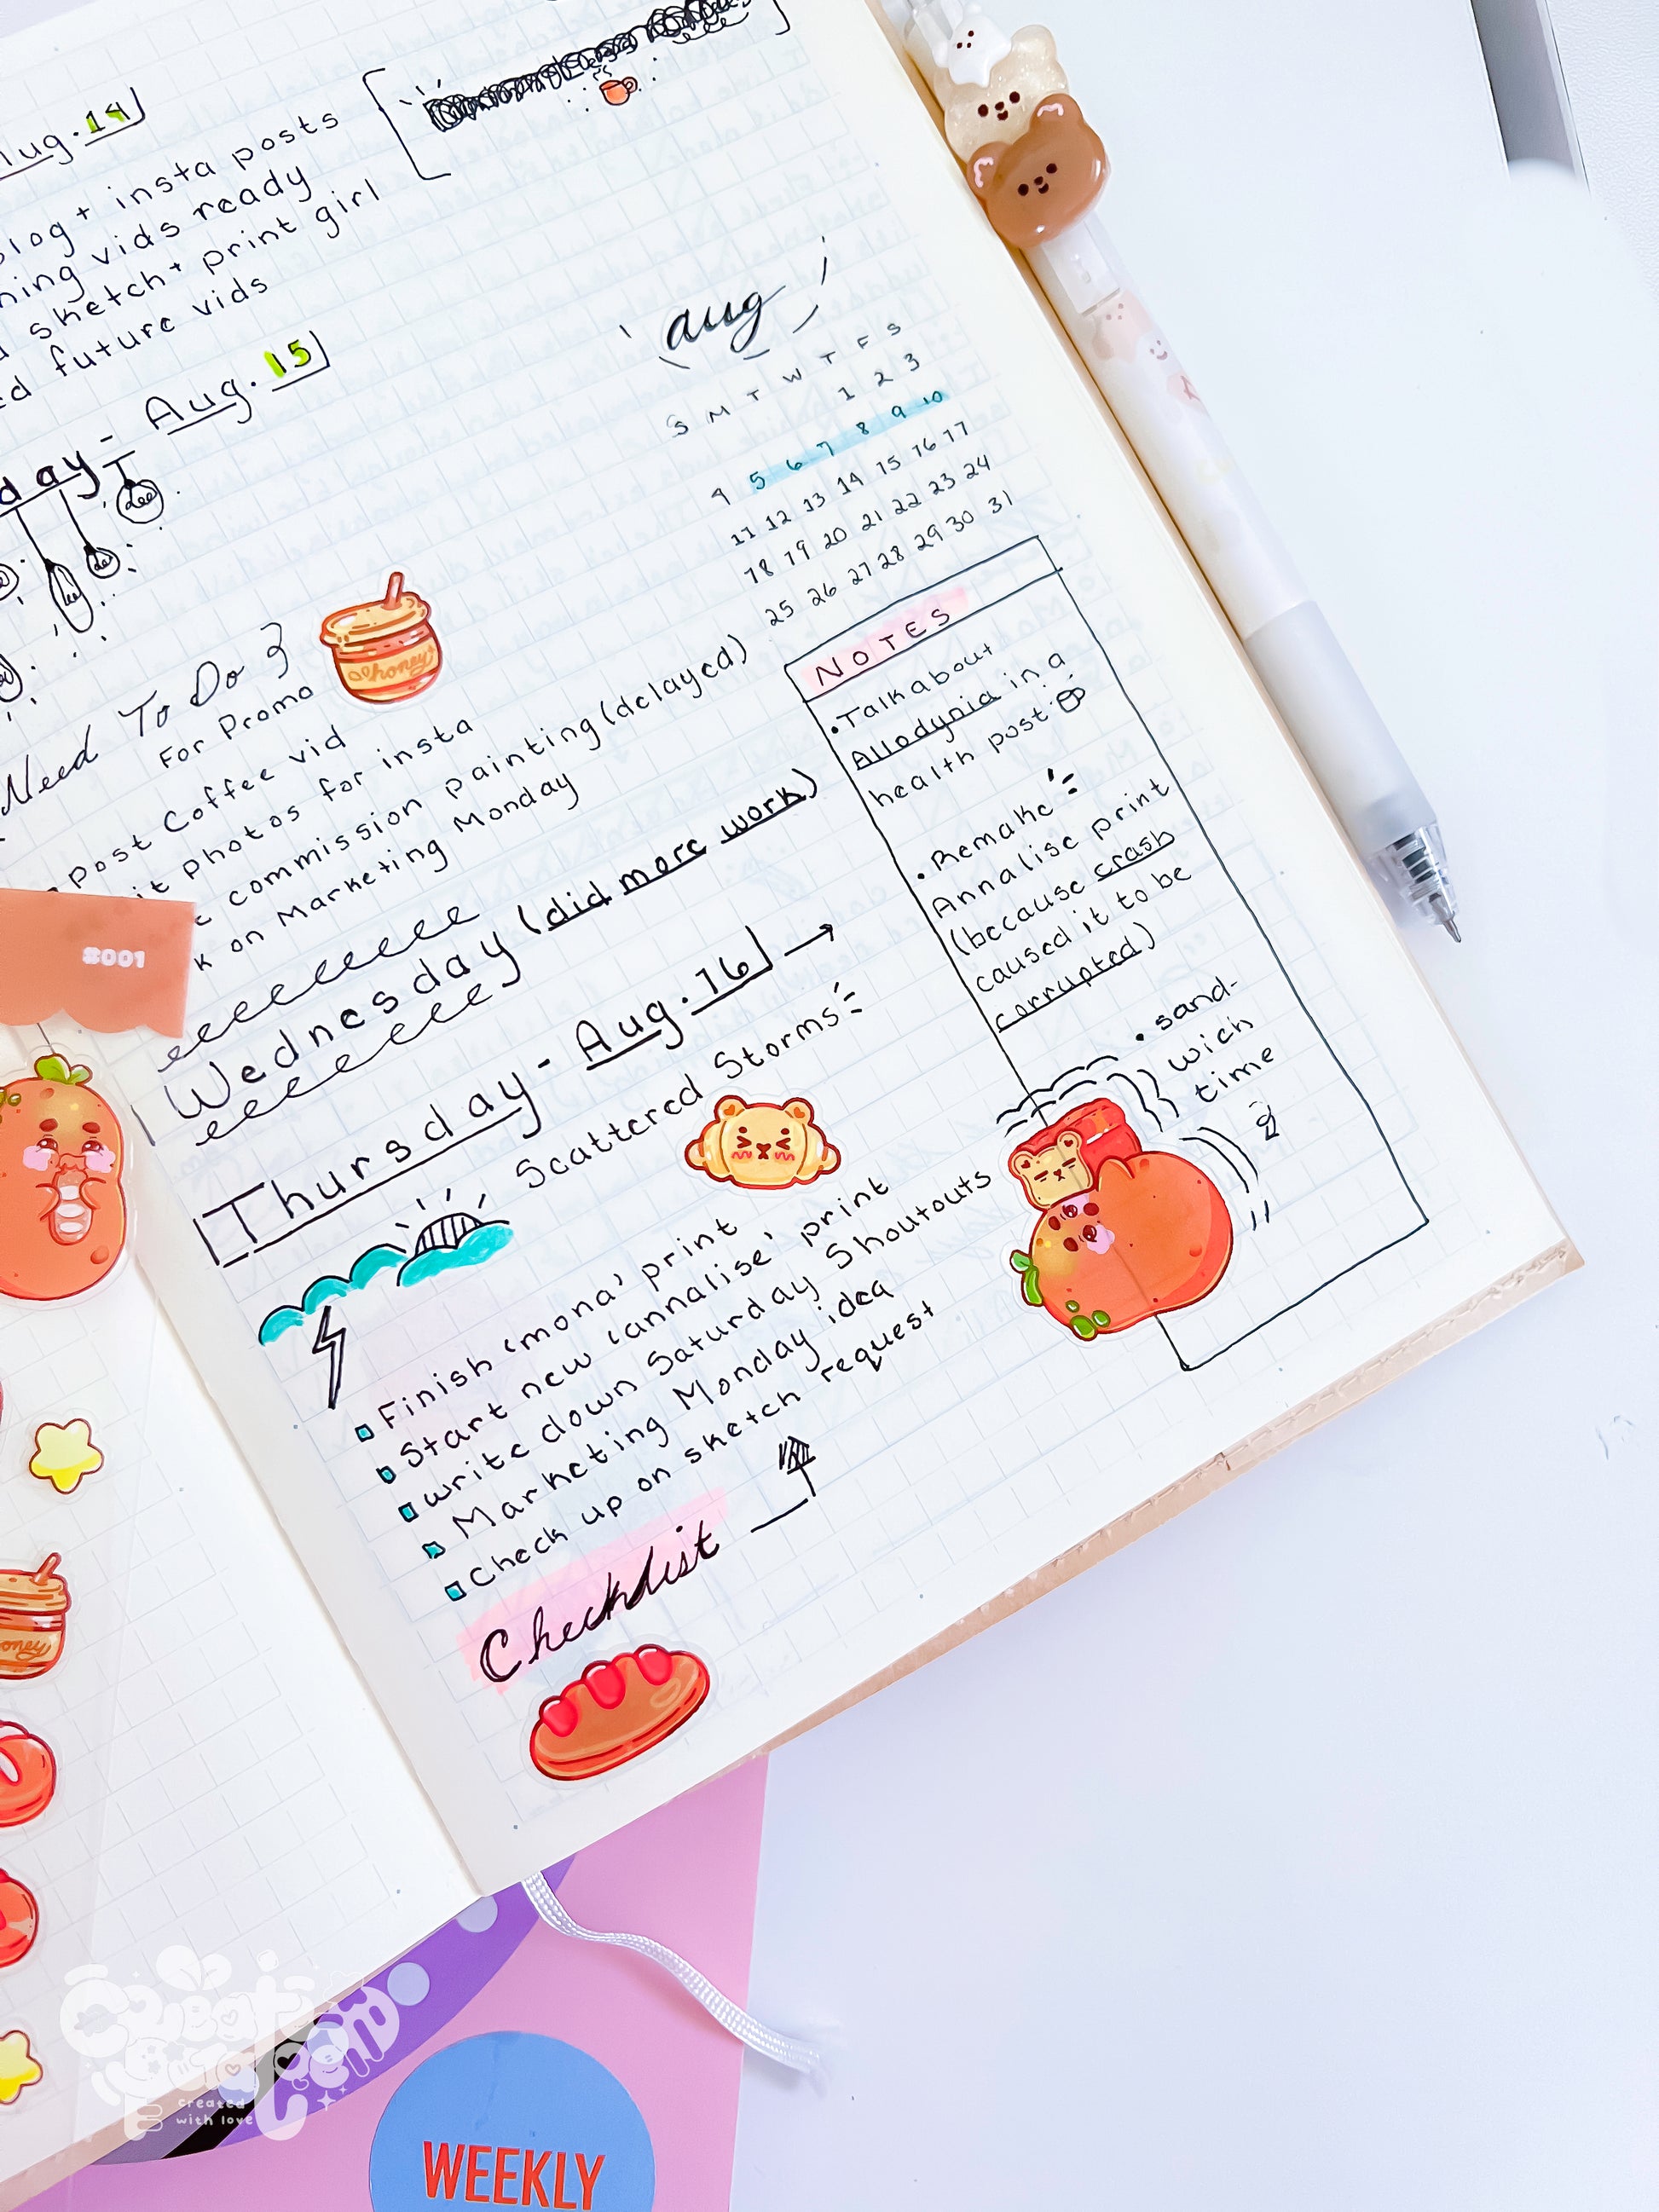 Aug. 14
blog + insta posts
vids ready
sketch + print girl
future vids
day - Aug. 15
Need To Do }
For Promo
honey
post Coffee vid
photos for insta
commission painting (delayed)
on Marketing Monday
Wednesday (did more work)
Thursday - Aug. 16
Scattered Storms
Finish 'mona' print
Start new 'annalise' print
write down Saturday Shoutouts
Marketing Monday idea
Check up on sketch request
Checklist
aug
S M T W T F S
1 2 3
4 5 6 7 8 9 10
11 12 13 14 15 16 17
18 19 20 21 22 23 24
25 26 27 28 29 30 31
NOTES
• Talk about
Allodynia in a
health post
• Remake
Annalise print
(because crash
caused it to be
corrupted)
• sand-
wich
time
#001
honey
created
with love
WEEKLY